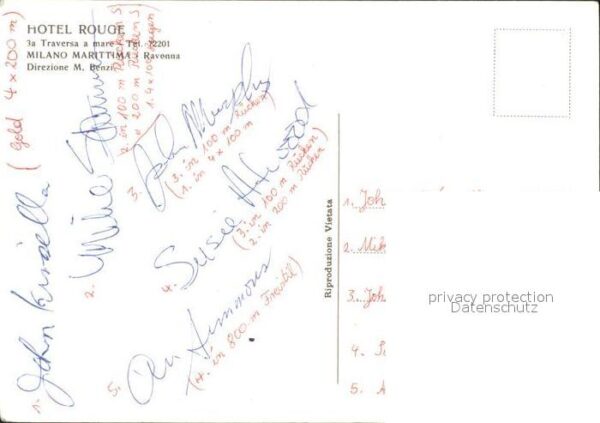 HOTEL ROUGE
3a Traversa a mare - Tel. 72201
MILANO MARITTIMA - Ravenna
Direzione M. Benzi
1. John Kinsella
(Gold 4 x 200 m)
2. Mike
2. in 100 m Rücken S
2. in 200 m Rücken S
1. 4 x 100 Lagen
3. John Murphy
(3. in 100 m Rücken
(1. in 4 x 100 m)
4. Susie Atwood
(3. in 100 m Rücken)
2. in 200 m Rücken)
5. Ann Simmons
(4. in 800 m Freistil)
Riproduzione Vietata
1. Joh
2. Mik
3. Joh
4. S
5. A
privacy protection
Datenschutz